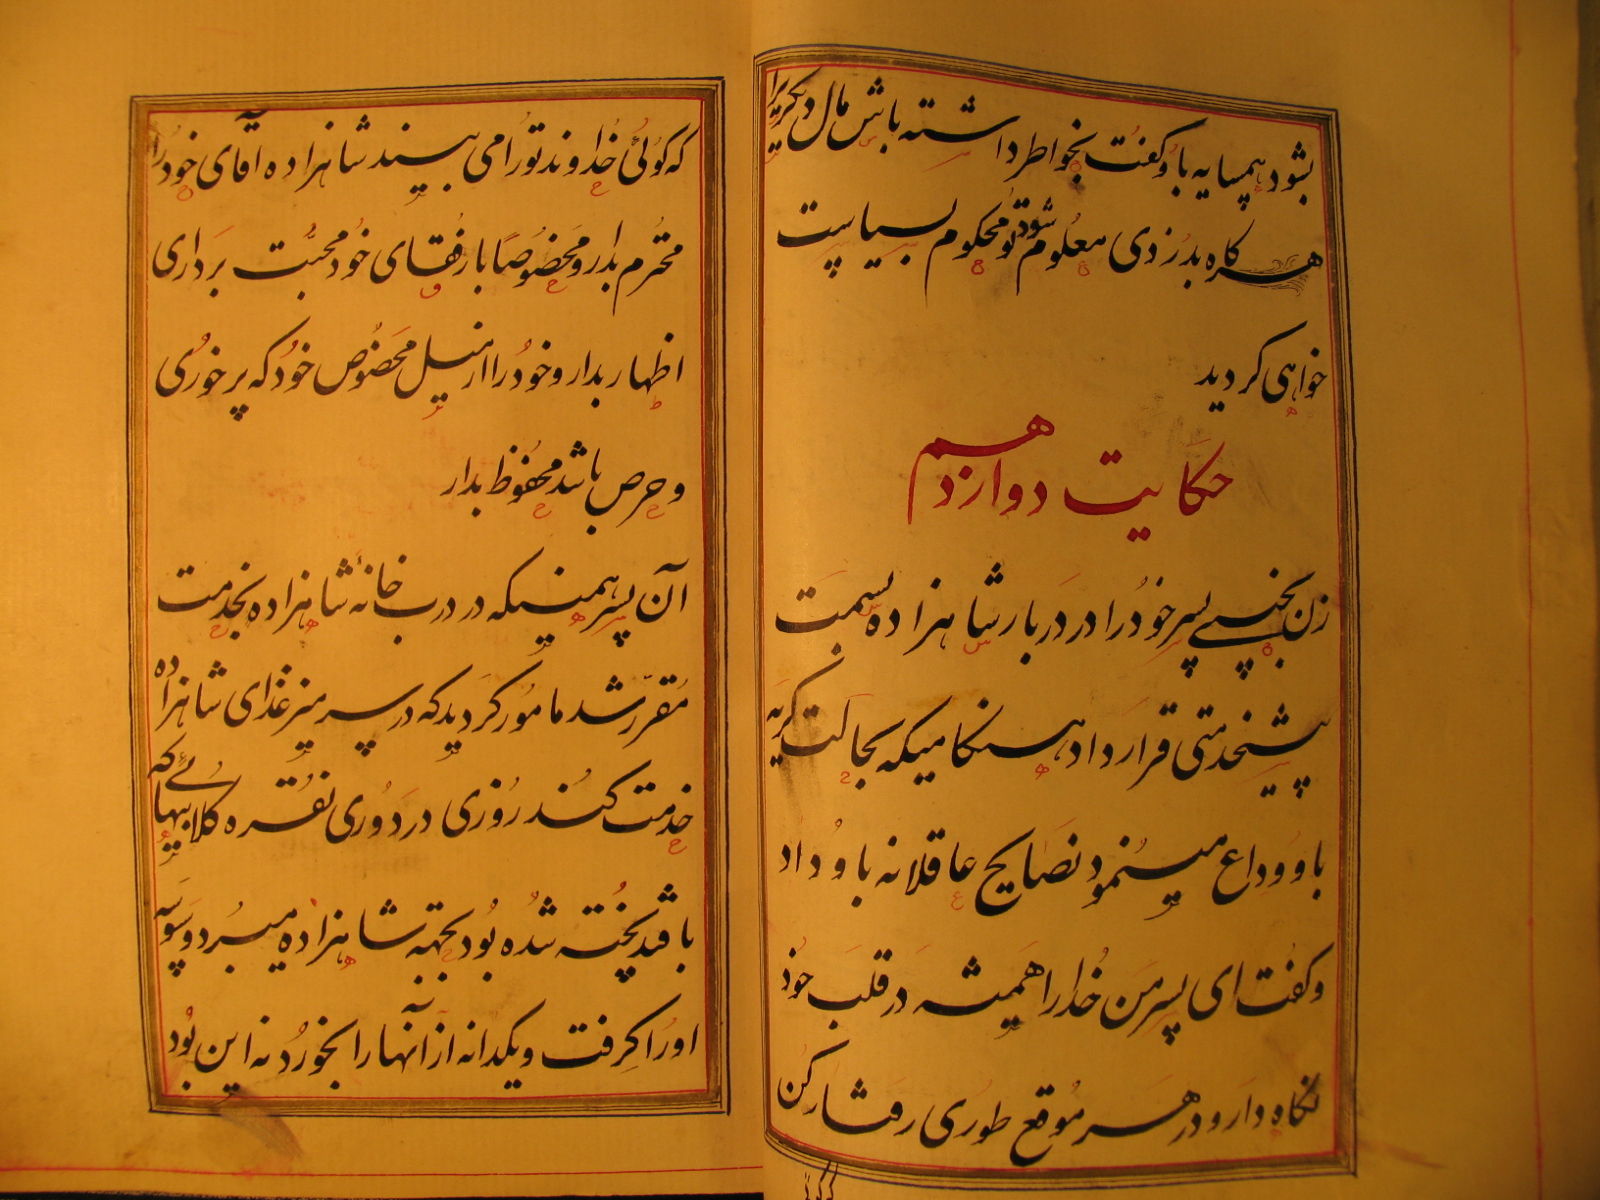 بشود همسایه باو گفت بخواطر داشته باش مال دیگریرا
هر گاه بدزدی معلوم شود تو محکوم بسیاست
خواهی گردید
حکایت دوازدهم
زن نجیبی پسر خود را در دربار شاهزاده بسمت
پیشخدمتی قرار داد هنگامیکه بحالت گریه
باو وداع مینمود نصایح عاقلانه باو داد
و گفت ای پسر من خدا را همیشه در قلب خود
نگاه دار و در هر موقع طوری رفتار کن
که گوئی
که گوئی خداوند تو را می بیند شاهزاده آقای خود را
محترم بدار و مخصوصا با رفقای خود محبت برداری
اظهار بدار و خود را از میل مخصوص خود که پر خوری
و حرص باشد محفوظ بدار
آن پسر همینکه در درب خانه شاهزاده بخدمت
مقرر شد مامور گردید که در سر میز غذای شاهزاده
خدمت کند روزی در دوری نقره گلابیهائی که
با قند پخته شده بود بجهته شاهزاده میبرد وسوسه
او را گرفت و یکدانه از آنها را بخورد نه این بود